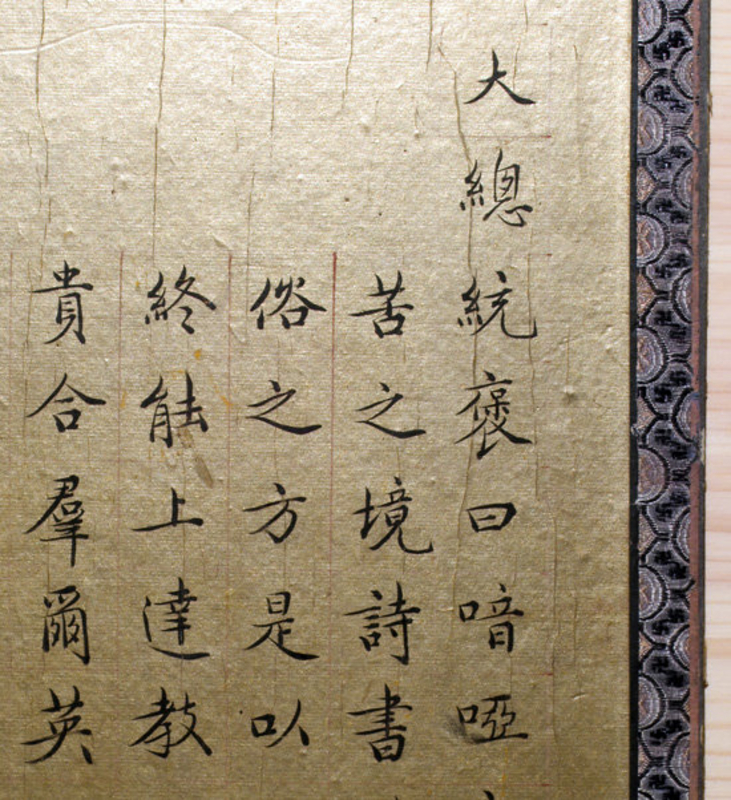 大總統褒曰喑啞
苦之境詩書
俗之方是以
終能上達教
貴合羣爾英